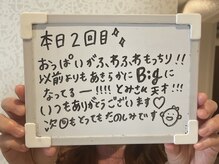 本日2回目
おっぱいがふわふわもっちり!!
以前よりもあきらかにBigに
なってるー!!!!とみさま
いつもありがとうございます♡
次回もとってもたのしみです